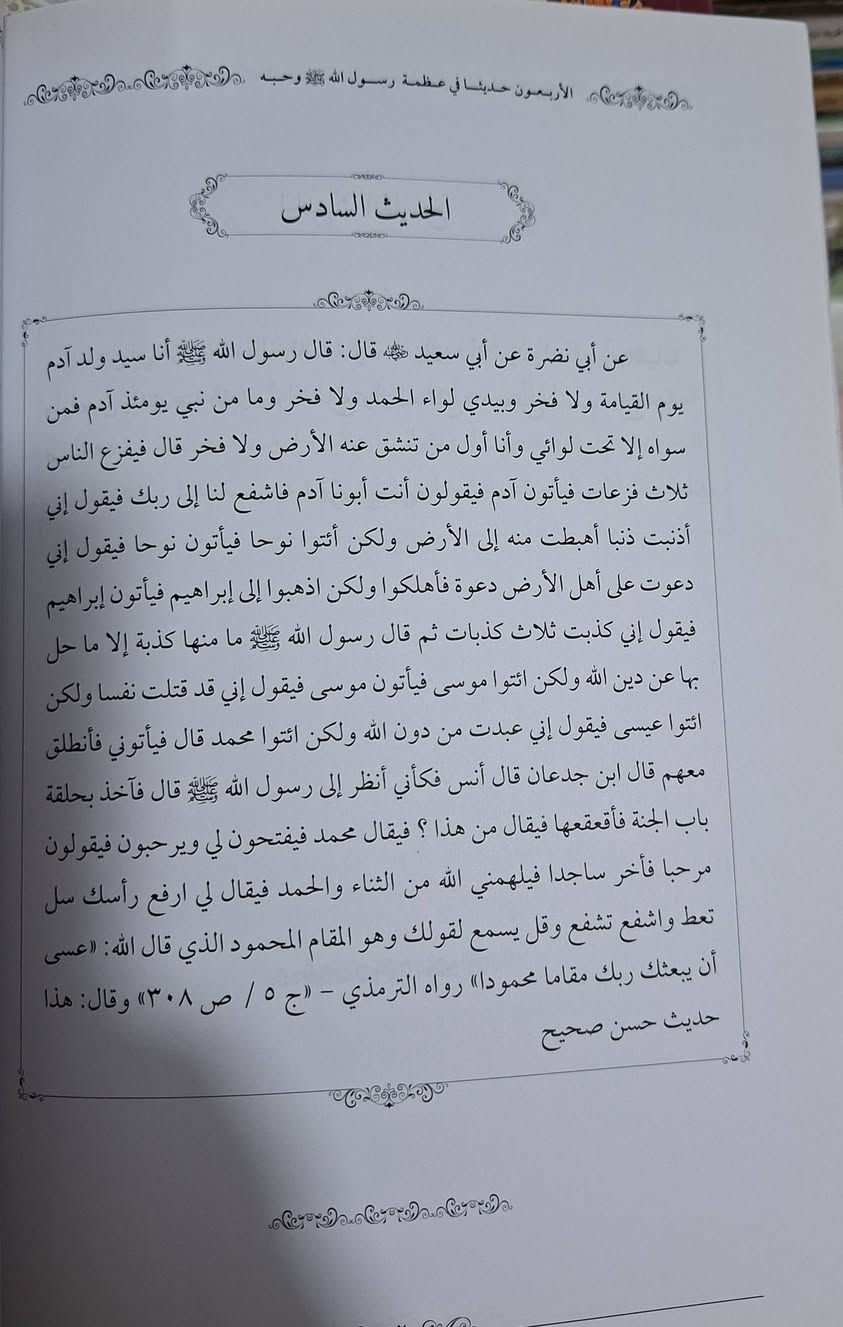 الأربعون حديثا في عظمة رسول الله ﷺ وحبه
الحديث السادس
عن أبي نضرة عن أبي سعيد رضي الله عنه قال: قال رسول الله ﷺ أنا سيد ولد آدم
يوم القيامة ولا فخر وبيدي لواء الحمد ولا فخر وما من نبي يومئذ آدم فمن
سواه إلا تحت لوائي وأنا أول من تنشق عنه الأرض ولا فخر قال فيفزع الناس
ثلاث فزعات فيأتون آدم فيقولون أنت أبونا آدم فاشفع لنا إلى ربك فيقول إني
أذنبت ذنبا أهبطت منه إلى الأرض ولكن أئتوا نوحا فيأتون نوحا فيقول إني
دعوت على أهل الأرض دعوة فأهلكوا ولكن اذهبوا إلى إبراهيم فيأتون إبراهيم
فيقول إني كذبت ثلاث كذبات ثم قال رسول الله ﷺ ما منها كذبة إلا ما حل
بها عن دين الله ولكن ائتوا موسى فيأتون موسى فيقول إني قد قتلت نفسا ولكن
ائتوا عيسى فيقول إني عبدت من دون الله ولكن ائتوا محمد قال فيأتوني فأنطلق
معهم قال ابن جدعان قال أنس فكأني أنظر إلى رسول الله ﷺ قال فآخذ بحلقة
باب الجنة فأقعقعها فيقال من هذا ؟ فيقال محمد فيفتحون لي ويرحبون فيقولون
مرحبا فأخر ساجدا فيلهمني الله من الثناء والحمد فيقال لي ارفع رأسك سل
تعط واشفع تشفع وقل يسمع لقولك وهو المقام المحمود الذي قال الله: «عسى
أن يبعثك ربك مقاما محمودا» رواه الترمذي – «ج ٥ / ص ٣٠٨» وقال: هذا
حديث حسن صحيح